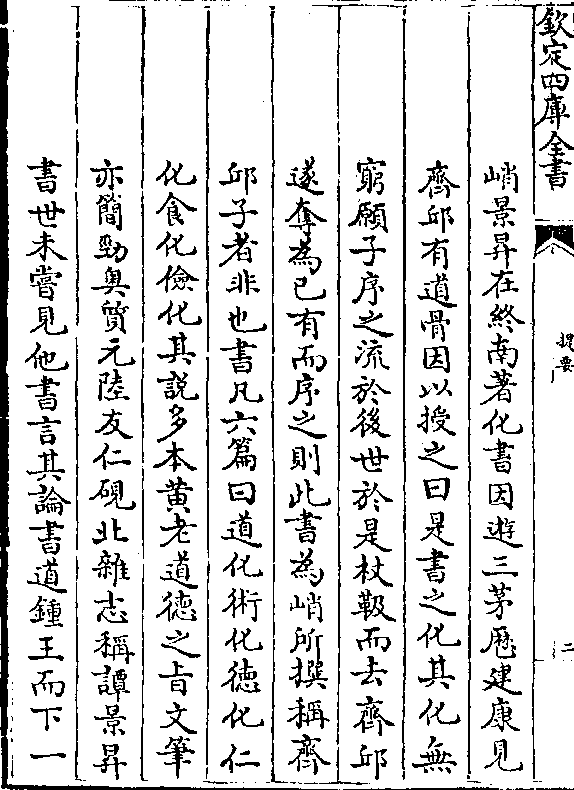 欽定四庫全書
提要
二
峭景昇在終南著化書因遊三茅歴建康見
齊邱有道骨因以授之曰是書之化其化無
窮願子序之流於後世於是杖靸而去齊邱
遂奪為己有而序之則此書為峭所撰稱齊
邱子者非也書凡六篇曰道化術化徳化仁
化食化儉化其說多本黄老道徳之旨文筆
亦簡勁奥質元陸友仁硯北雜志稱譚景昇
書世未嘗見他書言其論書道鍾王而下一